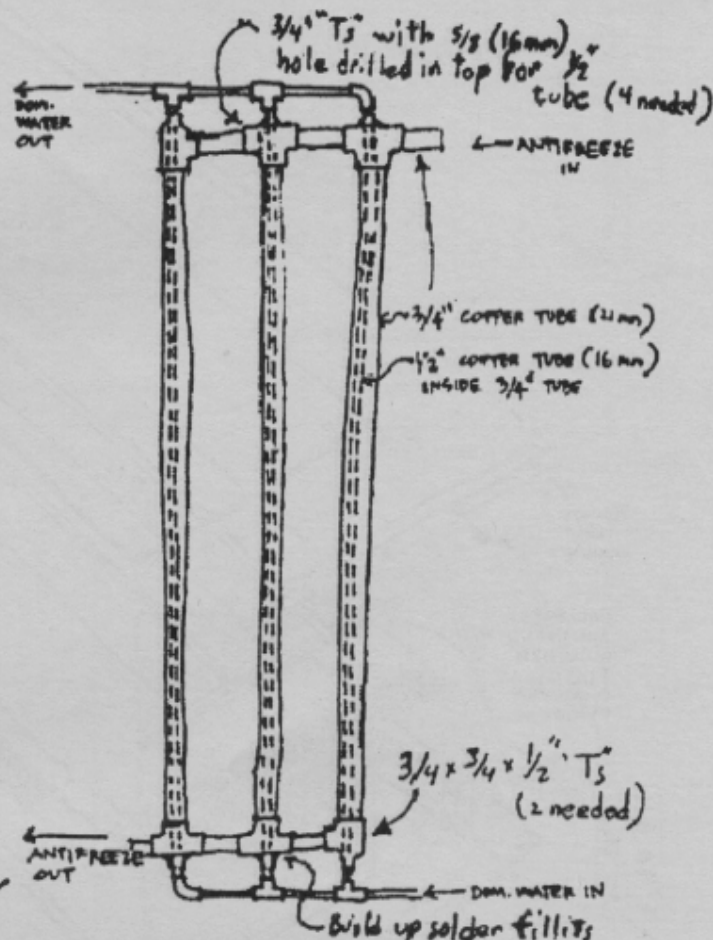 3/4" "Ts" with 5/8 (16mm)
hole drilled in top for 1/2"
tube (4 needed)
DOM.
WATER
OUT
← ANTIFREEZE
IN
3/4" COPPER TUBE (21mm)
1/2" COPPER TUBE (16mm)
INSIDE 3/4" TUBE
3/4 x 3/4 x 1/2" "Ts"
(2 needed)
ANTIFREEZE
OUT
← DOM. WATER IN
Build up solder fillits